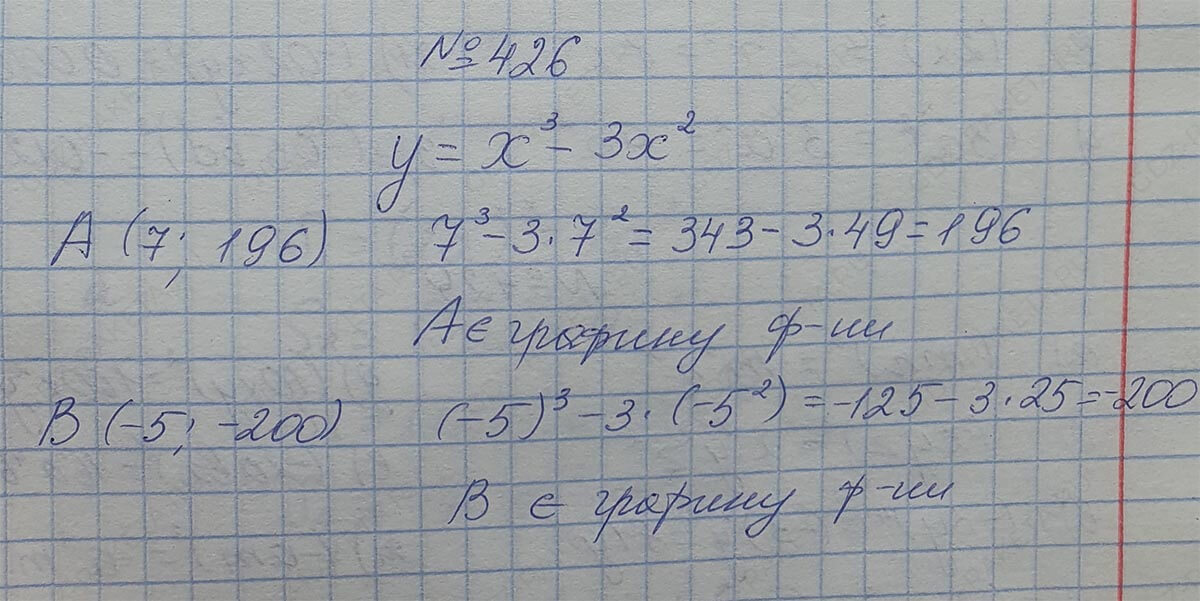 № 426
y = x³ - 3x²
A (7; 196) 7³ - 3·7² = 343 - 3·49 = 196
A ∈ графику ф-ии
B (-5; -200) (-5)³ - 3·(-5²) = -125 - 3·25 = -200
B ∈ графику ф-ии